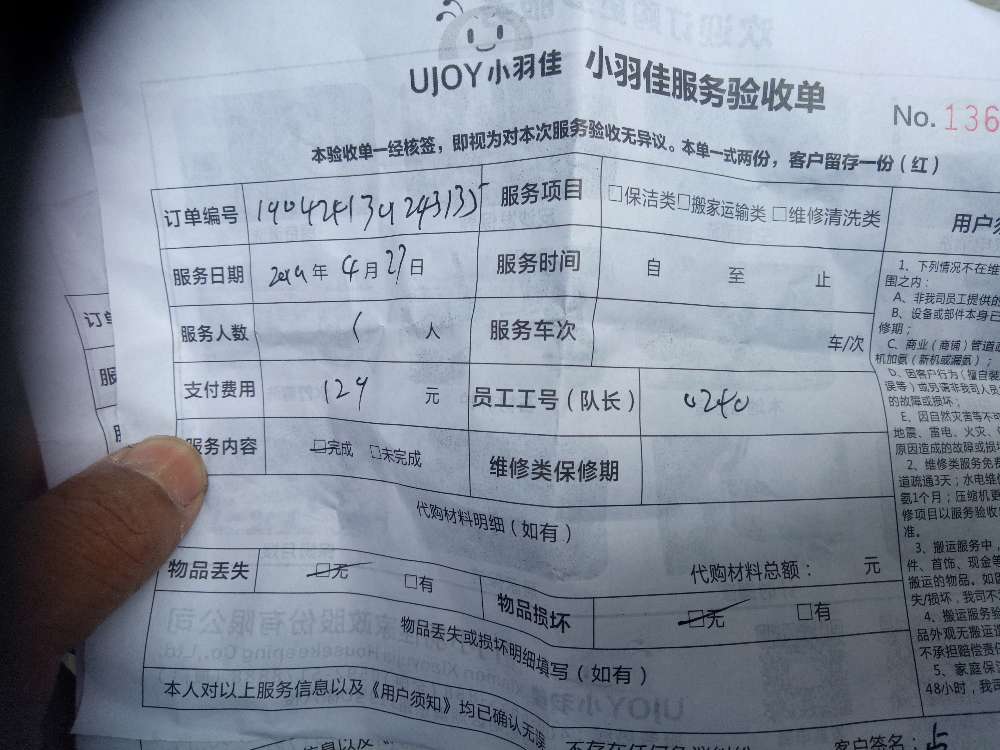 UJOY小羽佳 小羽佳服务验收单
No. 136
本验收单一经核签，即视为对本次服务验收无异议。本单一式两份，客户留存一份（红）
订单编号 服务项目 □保洁类□搬家运输类 □维修清洗类
服务日期 2019年4月27日 服务时间 自 至 止
服务人数 1 人 服务车次 车/次
支付费用 129 元 员工工号（队长） 0240
服务内容 □完成 □未完成 维修类保修期
代购材料明细（如有）
代购材料总额： 元
物品丢失 □无 □有 物品损坏 □无 □有
物品丢失或损坏明细填写（如有）
本人对以上服务信息以及《用户须知》均已确认无误
客户签名：
用户须
1、下列情况不在维
围之内：
A、非我司员工提供的
B、设备或部件本身已
修期；
C、商业（商铺）管道疏
机加氨（新机或漏氨）；
D、因客户行为（擅自装
误等）或另请非我司人员
的故障或损坏；
E、因自然灾害等不可
地震、雷电、火灾、
原因造成的故障或损坏
2、维修类服务免费
道疏通3天；水电维修
氨1个月；压缩机更
修项目以服务验收
准。
3、搬运服务中，
件、首饰、现金等
搬运的物品。如因
失/损坏，我司不
4、搬运服务验
品外观无搬运
不承担赔偿责任
5、家庭保
48小时，我司